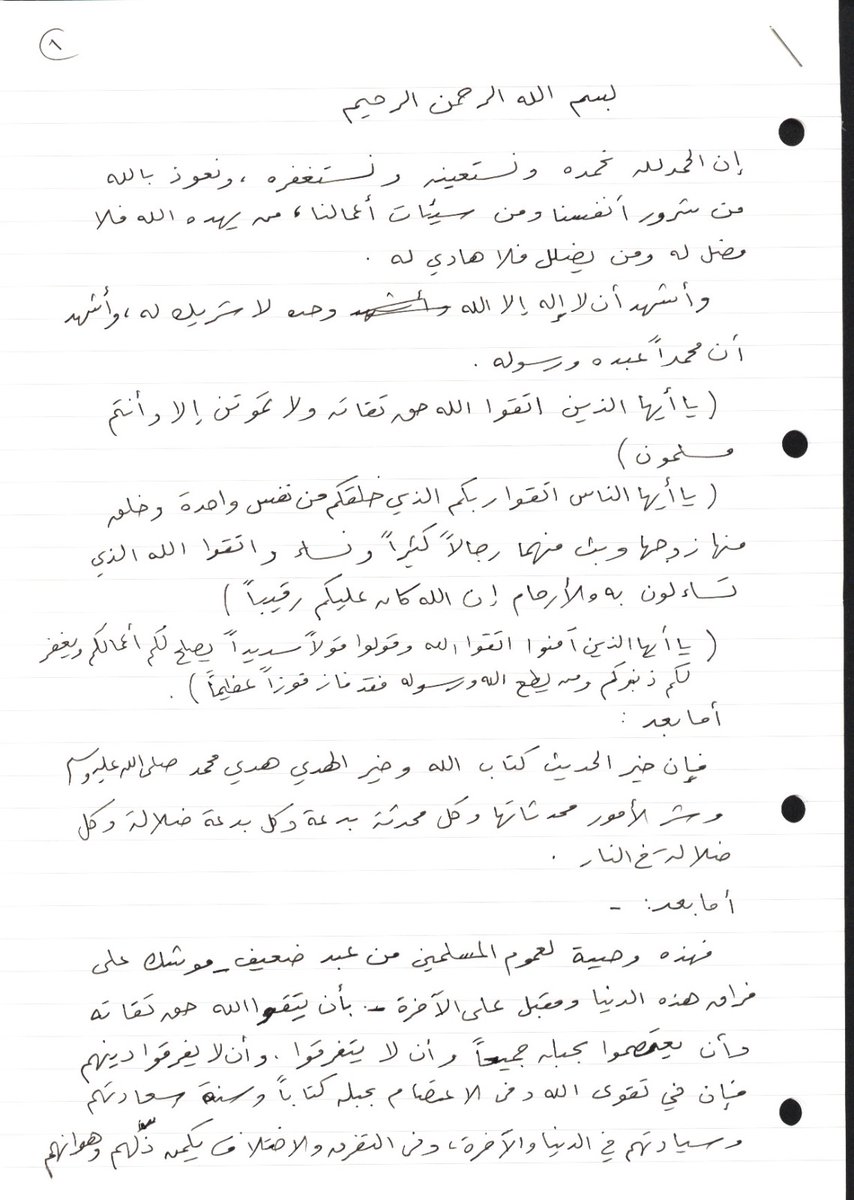 ١
بسم الله الرحمن الرحيم
إن الحمد لله نحمده ونستعينه ونستغفره، ونعوذ بالله
من شرور أنفسنا ومن سيئات أعمالنا، من يهده الله فلا
مضل له ومن يضلل فلا هادي له .
وأشهد أن لا إله إلا الله وأشهد وحده لا شريك له، وأشهد
أن محمداً عبده ورسوله .
(يا أيها الذين اتقوا الله حق تقاته ولا تموتن إلا وأنتم
مسلمون)
(يا أيها الناس اتقوا ربكم الذي خلقكم من نفس واحدة وخلق
منها زوجها وبث منهما رجالاً كثيراً ونساء واتقوا الله الذي
تساءلون به والأرحام إن الله كان عليكم رقيباً)
(يا أيها الذين آمنوا اتقوا الله وقولوا قولاً سديداً يصلح لكم أعمالكم ويغفر
لكم ذنوبكم ومن يطع الله ورسوله فقد فاز فوزاً عظيماً) .
أما بعد :
فإن خير الحديث كتاب الله وخير الهدي هدي محمد صلى الله عليه وسلم
وشر الأمور محدثاتها وكل محدثة بدعة وكل بدعة ضلالة وكل
ضلالة في النار .
أما بعد: -
فهذه وصية لعموم المسلمين من عبد ضعيف - موشك على
فراق هذه الدنيا ومقبل على الآخرة - بأن يتقوا الله حق تقاته
وأن يعتصموا بحبله جميعاً وأن لا يتفرقوا . وأن لا يفرقوا دينهم
فإن في تقوى الله وفي الاعتصام بحبله كتاباً وسنة سعادتهم
وسيادتهم في الدنيا والآخرة، وفي التفرق والاختلاف يكمن ذلهم وهوانهم